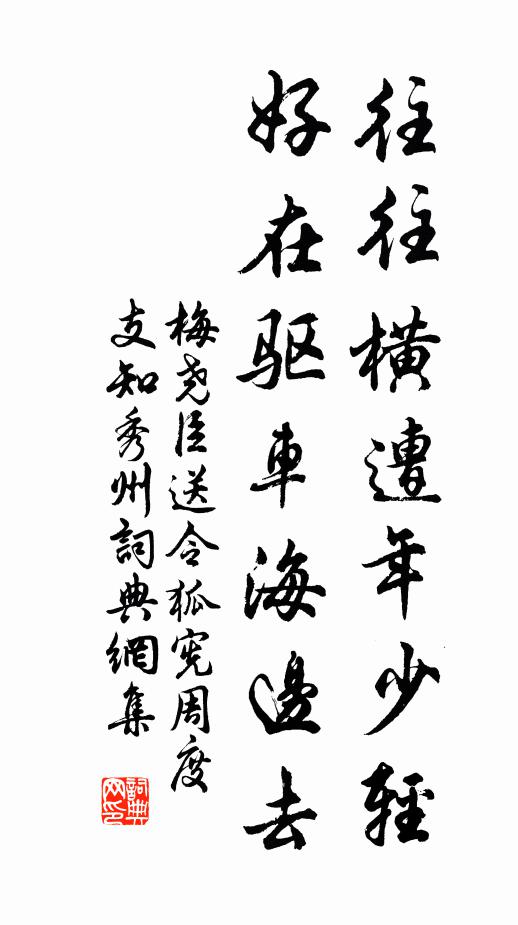 往往橫遭年少輕
好在驱車海邊去
梅尧臣送令狐宪周度
支知秀州詞典網集
詞典
网印